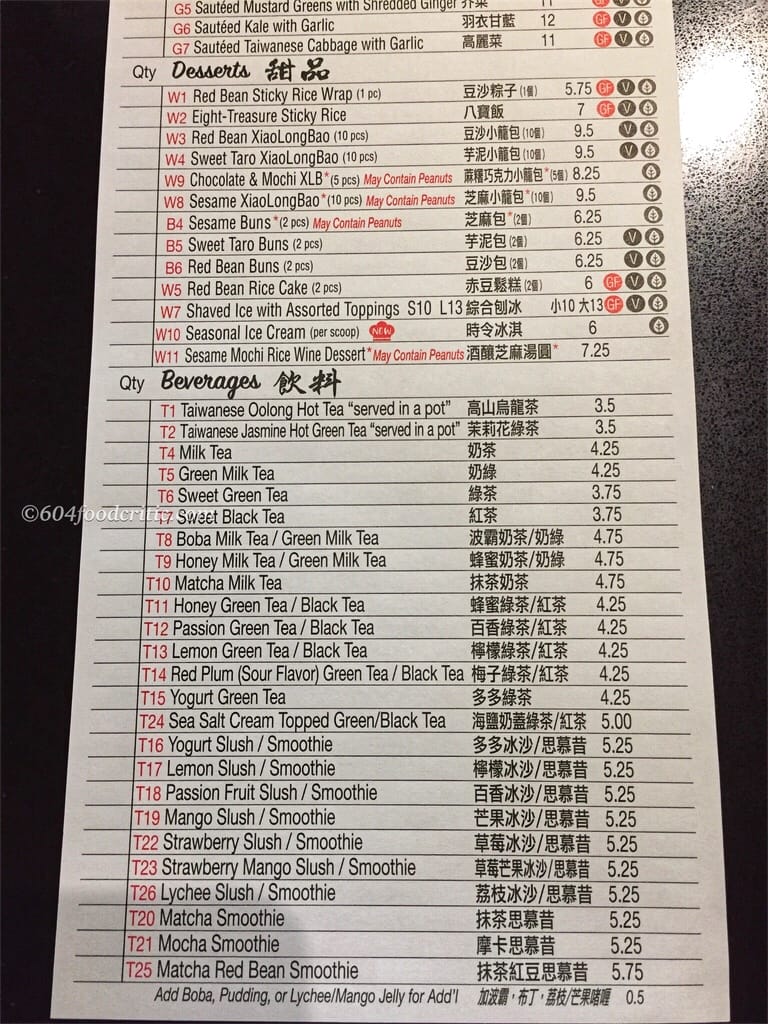 G5 Sautéed Mustard Greens with Shredded Ginger 芥菜 11 GF V
G6 Sautéed Kale with Garlic 羽衣甘藍 12 GF V
G7 Sautéed Taiwanese Cabbage with Garlic 高麗菜 11 GF V
Qty Desserts 甜品
W1 Red Bean Sticky Rice Wrap (1 pc) 豆沙粽子(1個) 5.75 GF V
W2 Eight-Treasure Sticky Rice 八寶飯 7 GF V
W3 Red Bean XiaoLongBao (10 pcs) 豆沙小籠包(10個) 9.5 V
W4 Sweet Taro XiaoLongBao (10 pcs) 芋泥小籠包(10個) 9.5 V
W9 Chocolate & Mochi XLB* (5 pcs) May Contain Peanuts 蔴糬巧克力小籠包*(5個) 8.25
W8 Sesame XiaoLongBao* (10 pcs) May Contain Peanuts 芝麻小籠包*(10個) 9.5
B4 Sesame Buns* (2 pcs) May Contain Peanuts 芝麻包*(2個) 6.25
B5 Sweet Taro Buns (2 pcs) 芋泥包(2個) 6.25 V
B6 Red Bean Buns (2 pcs) 豆沙包(2個) 6.25 V
W5 Red Bean Rice Cake (2 pcs) 赤豆鬆糕(2個) 6 GF V
W7 Shaved Ice with Assorted Toppings S10 L13 綜合刨冰 小10 大13 GF V
W10 Seasonal Ice Cream (per scoop) NEW 時令冰淇 6
W11 Sesame Mochi Rice Wine Dessert* May Contain Peanuts 酒釀芝麻湯圓* 7.25
Qty Beverages 飲料
T1 Taiwanese Oolong Hot Tea “served in a pot” 高山烏龍茶 3.5
T2 Taiwanese Jasmine Hot Green Tea “served in a pot” 茉莉花綠茶 3.5
T4 Milk Tea 奶茶 4.25
T5 Green Milk Tea 奶綠 4.25
T6 Sweet Green Tea 綠茶 3.75
©604foodcritic.com
T7 Sweet Black Tea 紅茶 3.75
T8 Boba Milk Tea / Green Milk Tea 波霸奶茶/奶綠 4.75
T9 Honey Milk Tea / Green Milk Tea 蜂蜜奶茶/奶綠 4.75
T10 Matcha Milk Tea 抹茶奶茶 4.75
T11 Honey Green Tea / Black Tea 蜂蜜綠茶/紅茶 4.25
T12 Passion Green Tea / Black Tea 百香綠茶/紅茶 4.25
T13 Lemon Green Tea / Black Tea 檸檬綠茶/紅茶 4.25
T14 Red Plum (Sour Flavor) Green Tea / Black Tea 梅子綠茶/紅茶 4.25
T15 Yogurt Green Tea 多多綠茶 4.25
T24 Sea Salt Cream Topped Green/Black Tea 海鹽奶蓋綠茶/紅茶 5.00
T16 Yogurt Slush / Smoothie 多多冰沙/思慕昔 5.25
T17 Lemon Slush / Smoothie 檸檬冰沙/思慕昔 5.25
T18 Passion Fruit Slush / Smoothie 百香冰沙/思慕昔 5.25
T19 Mango Slush / Smoothie 芒果冰沙/思慕昔 5.25
T22 Strawberry Slush / Smoothie 草莓冰沙/思慕昔 5.25
T23 Strawberry Mango Slush / Smoothie 草莓芒果冰沙/思慕昔 5.25
T26 Lychee Slush / Smoothie 荔枝冰沙/思慕昔 5.25
T20 Matcha Smoothie 抹茶思慕昔 5.25
T21 Mocha Smoothie 摩卡思慕昔 5.25
T25 Matcha Red Bean Smoothie 抹茶紅豆思慕昔 5.75
Add Boba, Pudding, or Lychee/Mango Jelly for Add'l 加波霸，布丁，荔枝/芒果啫喱 0.5